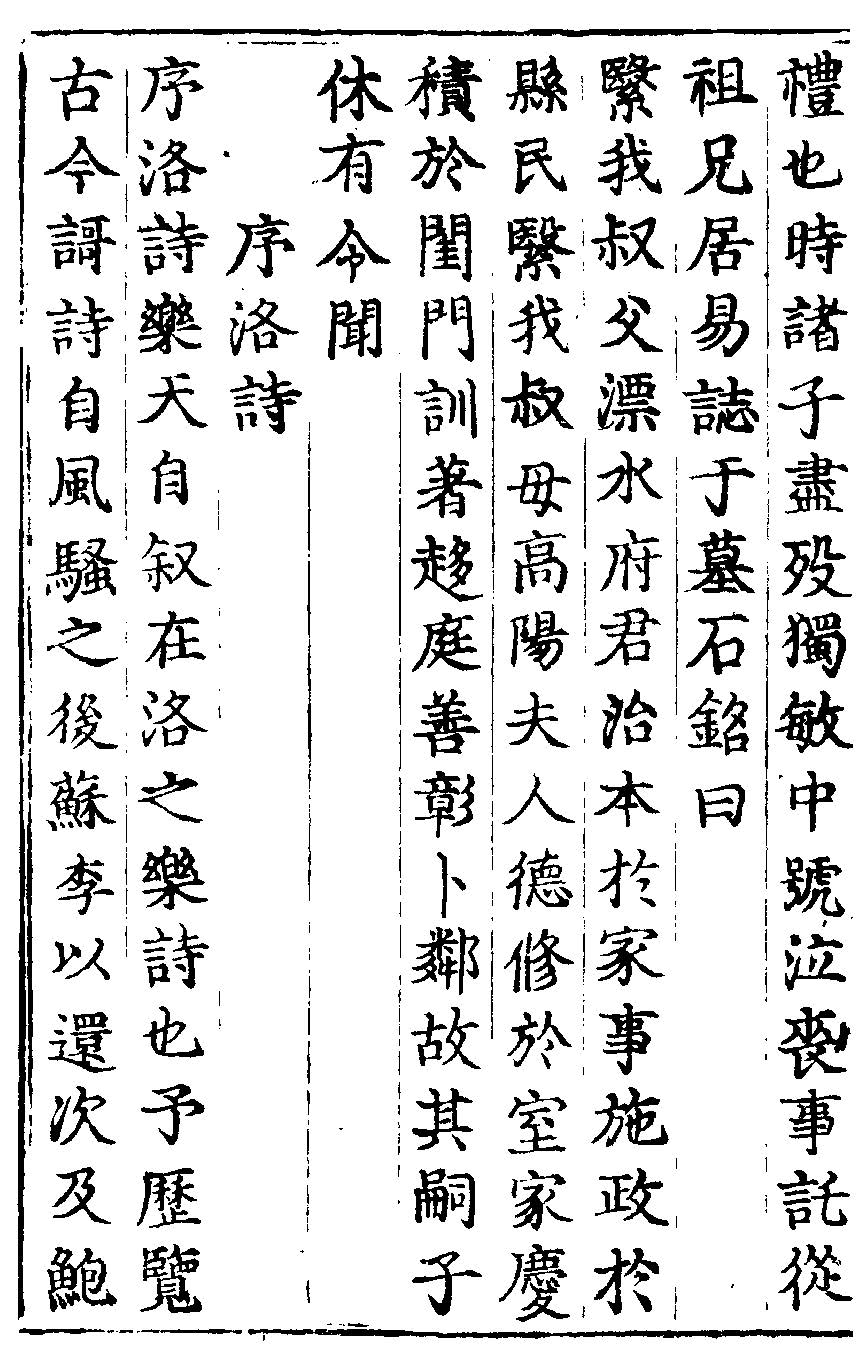 禮也時諸子盡殁獨敏中號泣喪事託從
祖兄居易誌于墓石銘曰
緊我叔父漂水府君治本於家事施政於
縣民緊我叔母高陽夫人德修於室家慶
積於閨門訓著趍庭善彰卜鄰故其嗣子
休有令聞
序洛詩
序洛詩樂天自叙在洛之樂詩也予歷覽
古今謌詩自風騷之後蘇李以還次及鮑